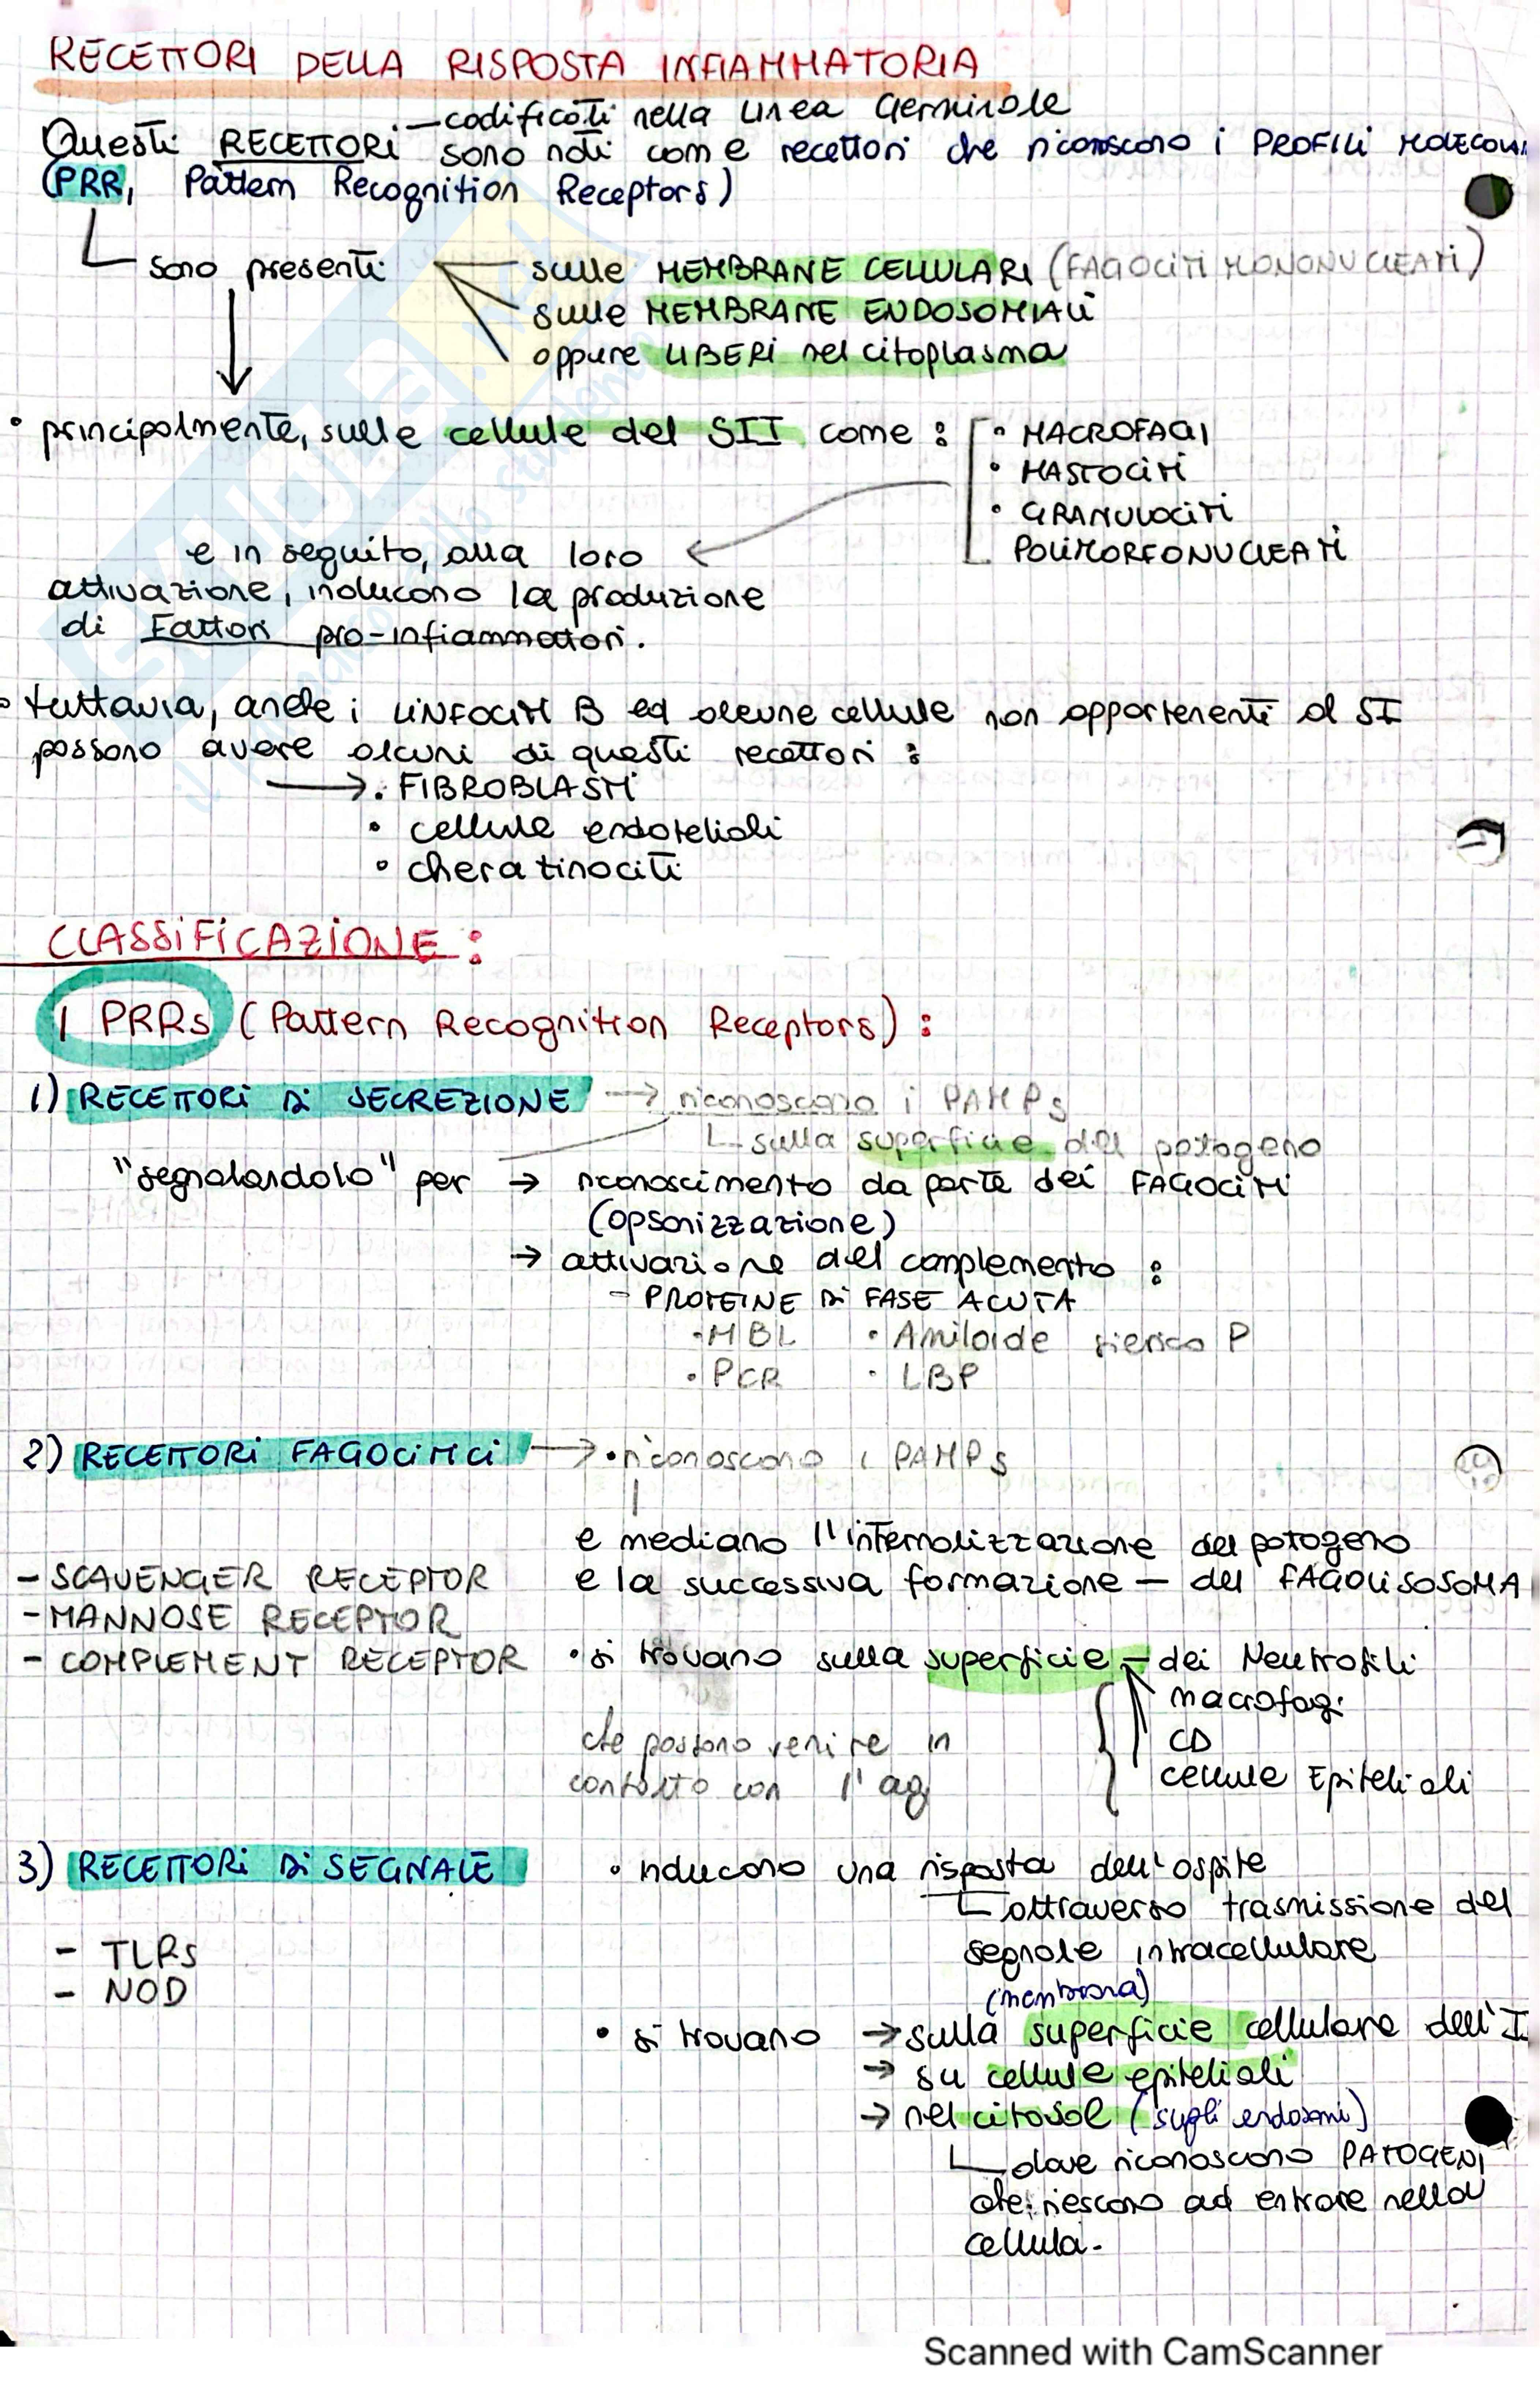 RECETTORI DELLA RISPOSTA INFIAMMATORIA
—codificati nella linea Germinale
Questi RECETTORI sono noti come recettori che riconoscono i PROFILI MOLECOLARI
(PRR, Pattern Recognition Receptors)
sono presenti
sulle MEMBRANE CELLULARI (FAGOCITI MONONUCLEATI)
sulle MEMBRANE ENDOSOMIALI
oppure LIBERI nel citoplasma
• principalmente, sulle cellule del SII come :
• MACROFAGI
• MASTOCITI
• GRANULOCITI
POLIMORFONUCLEATI
e in seguito, alla loro
attivazione, inducono la produzione
di Fattori pro-infiammatori.
• tuttavia, anche i LINFOCITI B ed alcune cellule non appartenenti al SI
possono avere alcuni di questi recettori :
→ • FIBROBLASTI
• cellule endoteliali
• cheratinociti
CLASSIFICAZIONE :
I PRRs (Pattern Recognition Receptors) :
1) RECETTORI DI SECREZIONE → riconoscono i PAMPs
sulla superficie del patogeno
"segnalandolo" per → riconoscimento da parte dei FAGOCITI
(opsonizzazione)
→ attivazione del complemento :
- PROTEINE DI FASE ACUTA
• MBL • Amiloide sierico P
• PCR • LBP
2) RECETTORI FAGOCITICI → • riconoscono i PAMPs
e mediano l'internalizzazione del patogeno
e la successiva formazione — del FAGOLISOSOMA
- SCAVENGER RECEPTOR
- MANNOSE RECEPTOR
- COMPLEMENT RECEPTOR
• si trovano sulla superficie — dei Neutrofili
macrofagi
CD
cellule Epiteliali
che possono venire in
contatto con l'ag
3) RECETTORI DI SEGNALE
• inducono una risposta dell'ospite
attraverso trasmissione del
segnale intracellulare
- TLRs
- NOD
(membrana)
• si trovano → sulla superficie cellulare dell'I
→ su cellule epiteliali
→ nel citosol (sugli endosomi)
dove riconoscono PATOGENI
che riescono ad entrare nella
cellula.
Scanned with CamScanner